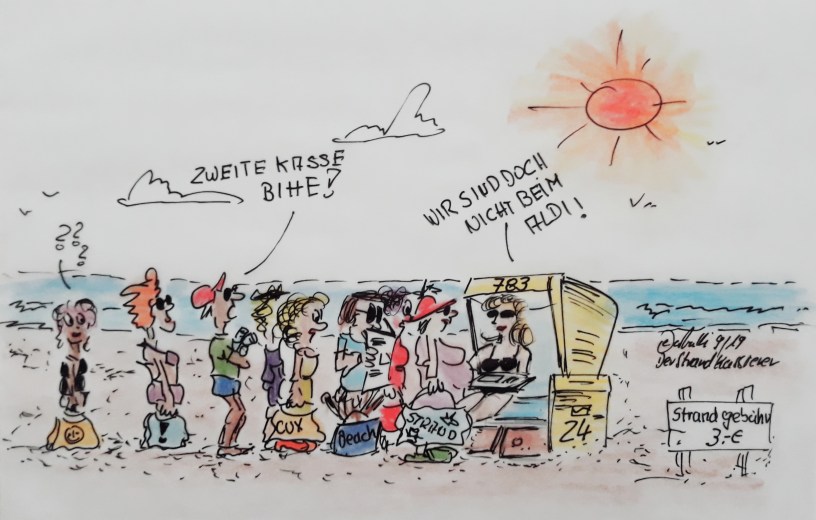 ZWEITE KASSE
BITTE!
WIR SIND DOCH
NICHT BEIM
ALDI!
???
783
9/19
Der Strandkassierer
Strandgebühr
3,-€
CUX
Beach
STRAND
24
!